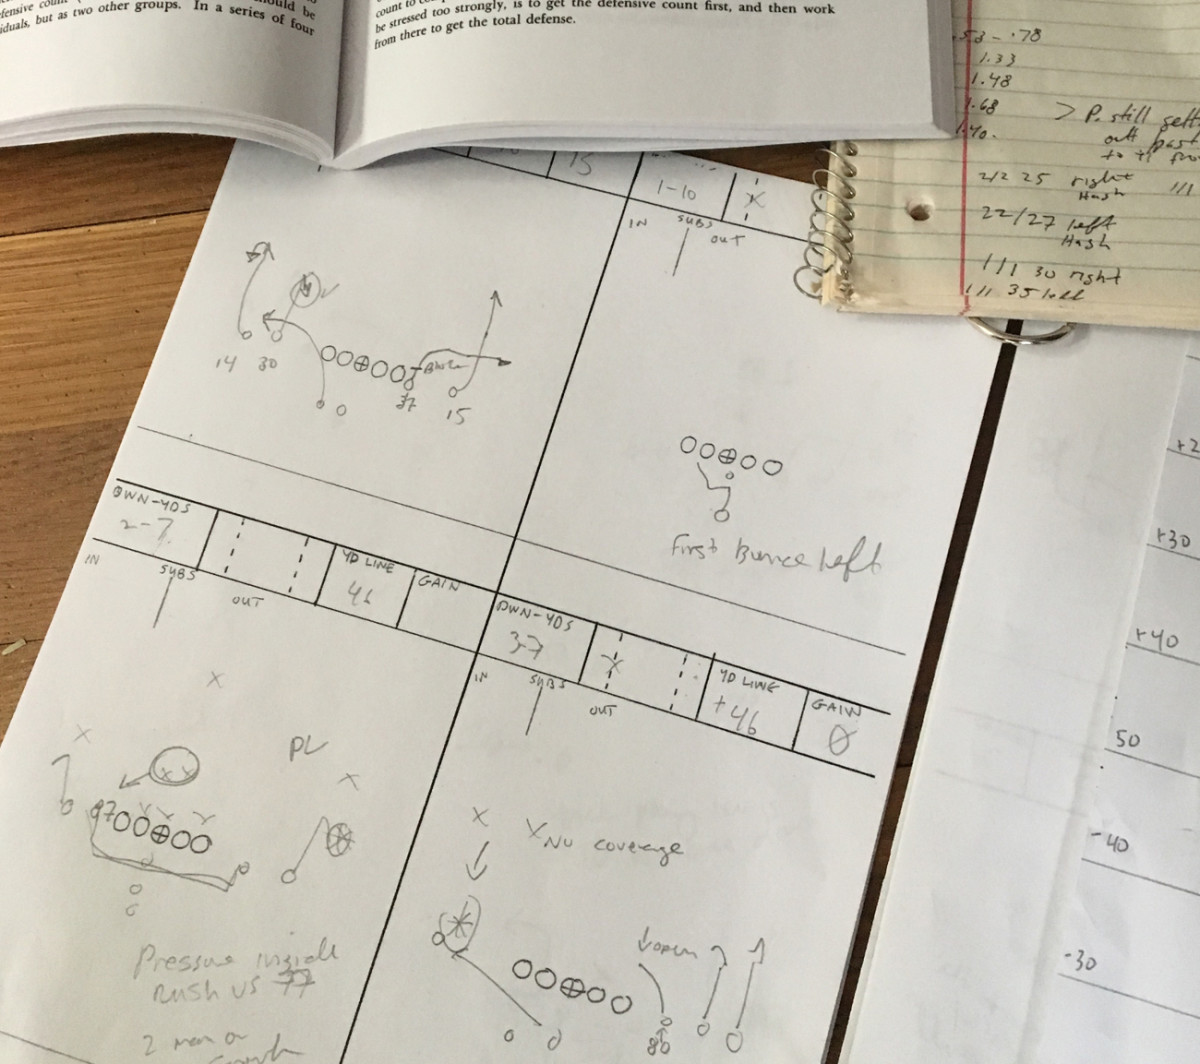 should be
iduals, but as two other groups. In a series of four
be stressed too strongly, is to get the defensive count first, and then work
from there to get the total defense.
.53 - .78
1.33
1.48
1.68
1.40.
> P. still gett
out past
to
2/2 25 right
Hash
111
22/27 left
Hash
111 30 right
111 35 left
15
1-10
X
IN
SUBS
OUT
14
30
37
15
First Bounce Left
DWN-YDS
2-7
YD LINE
46
GAIN
IN
SUBS
OUT
DWN-YDS
3-7
X
YD LINE
+46
GAIN
0
IN
SUBS
OUT
X
X
PL
X
X X
87
Pressure inside
Rush vs 77
2 man or
X
X
No coverage
open
80
+2
+30
+40
50
-40
-30